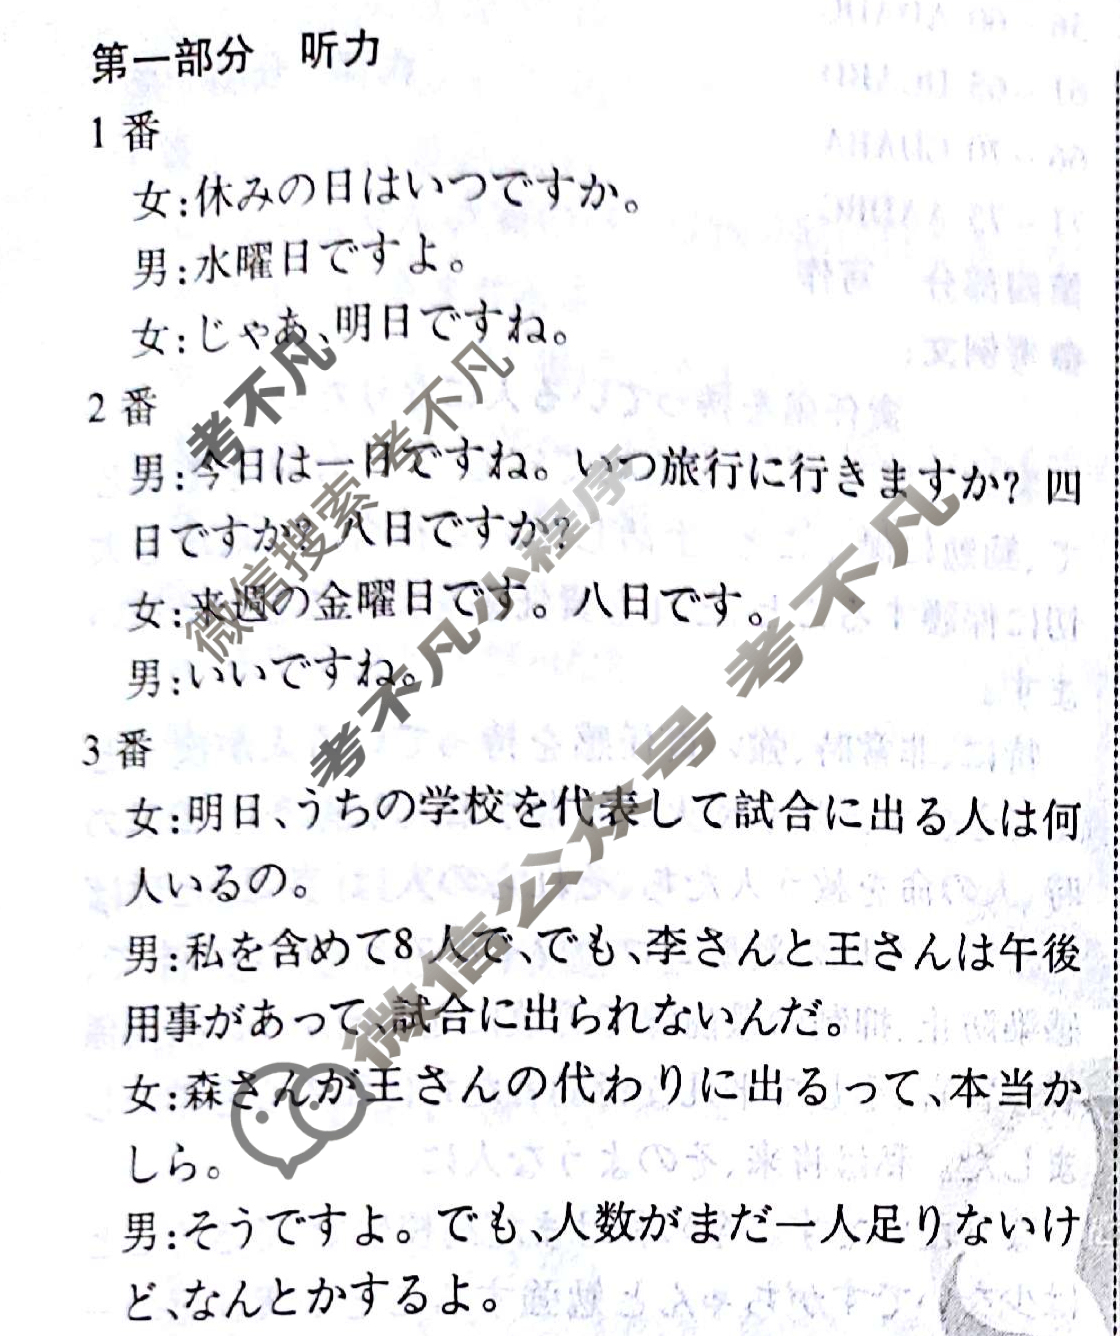 第一部分 听力
1 番
女:休みの日はいつですか。
男:水曜日ですよ。
女:じゃあ、明日ですね。
2 番
男:今日は一日ですね。いつ旅行に行きますか? 四
日ですか? 八日ですか?
女:来週の金曜日です。八日です。
男:いいですね。
3 番
女:明日、うちの学校を代表して試合に出る人は何
人いるの。
男:私を含めて8人で、でも、李さんと王さんは午後
用事があって、試合に出られないんだ。
女:森さんが王さんの代わりに出るって、本当か
しら。
男:そうですよ。でも、人数がまだ一人足りないけ
ど、なんとかするよ。
考不凡
微信搜索 考不凡
考不凡小程序
微信公众号 考不凡